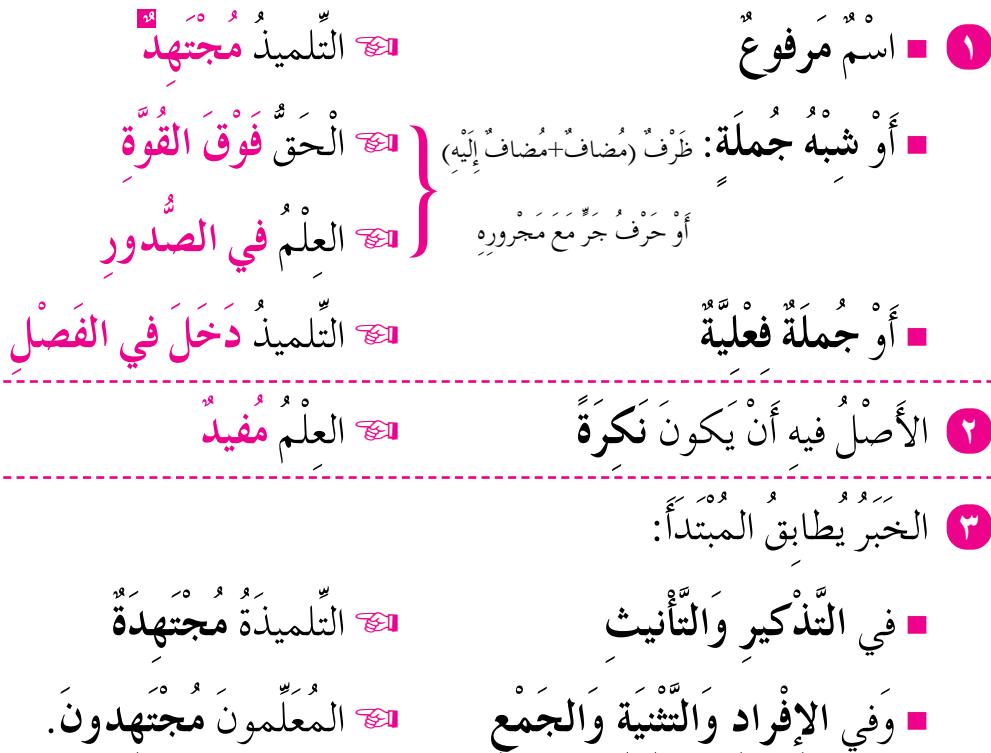 ١ ■ اسْمٌ مَرفوعٌ ☜ التِّلميذُ مُجْتَهِدٌ
■ أَوْ شِبْهُ جُملَةٍ: ظَرْفٌ (مُضافٌ+مُضافٌ إِلَيْهِ) ☜ الْحَقُّ فَوْقَ القُوَّةِ
أَوْ حَرْفُ جَرٍّ مَعَ مَجْرورِهِ ☜ العِلْمُ في الصُّدورِ
■ أَوْ جُملَةٌ فِعْلِيَّةٌ ☜ التِّلميذُ دَخَلَ في الفَصْلِ
٢ الأَصْلُ فيهِ أَنْ يَكونَ نَكِرَةً ☜ العِلْمُ مُفيدٌ
٣ الخَبَرُ يُطابِقُ المُبْتَدَأَ:
■ في التَّذْكيرِ وَالتَّأْنيثِ ☜ التِّلميذَةُ مُجْتَهِدَةٌ
■ وَفي الإِفْراد وَالتَّثْنيَة وَالجَمْع ☜ المُعَلِّمونَ مُجْتَهدونَ.